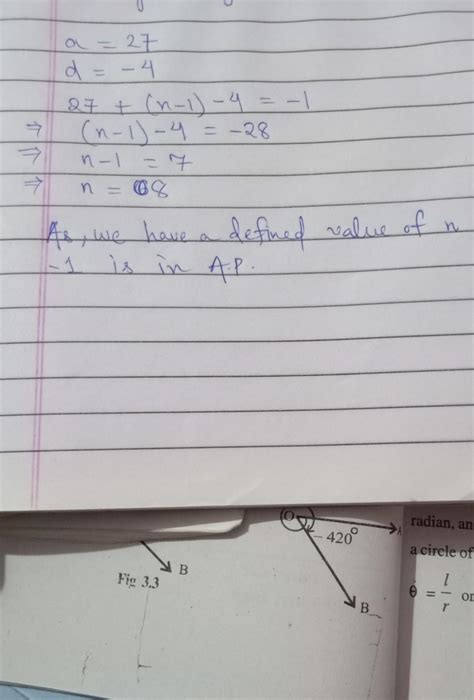 a = 27
d = -4
27 + (n-1) -4 = -1
⇒ (n-1) -4 = -28
⇒ n-1 = 7
⇒ n = 8
As, we have a defined value of n
-1 is in A.P.
O
-420°
A
B
B
Fig 3.3
radian, an
a circle of
θ = l/r or